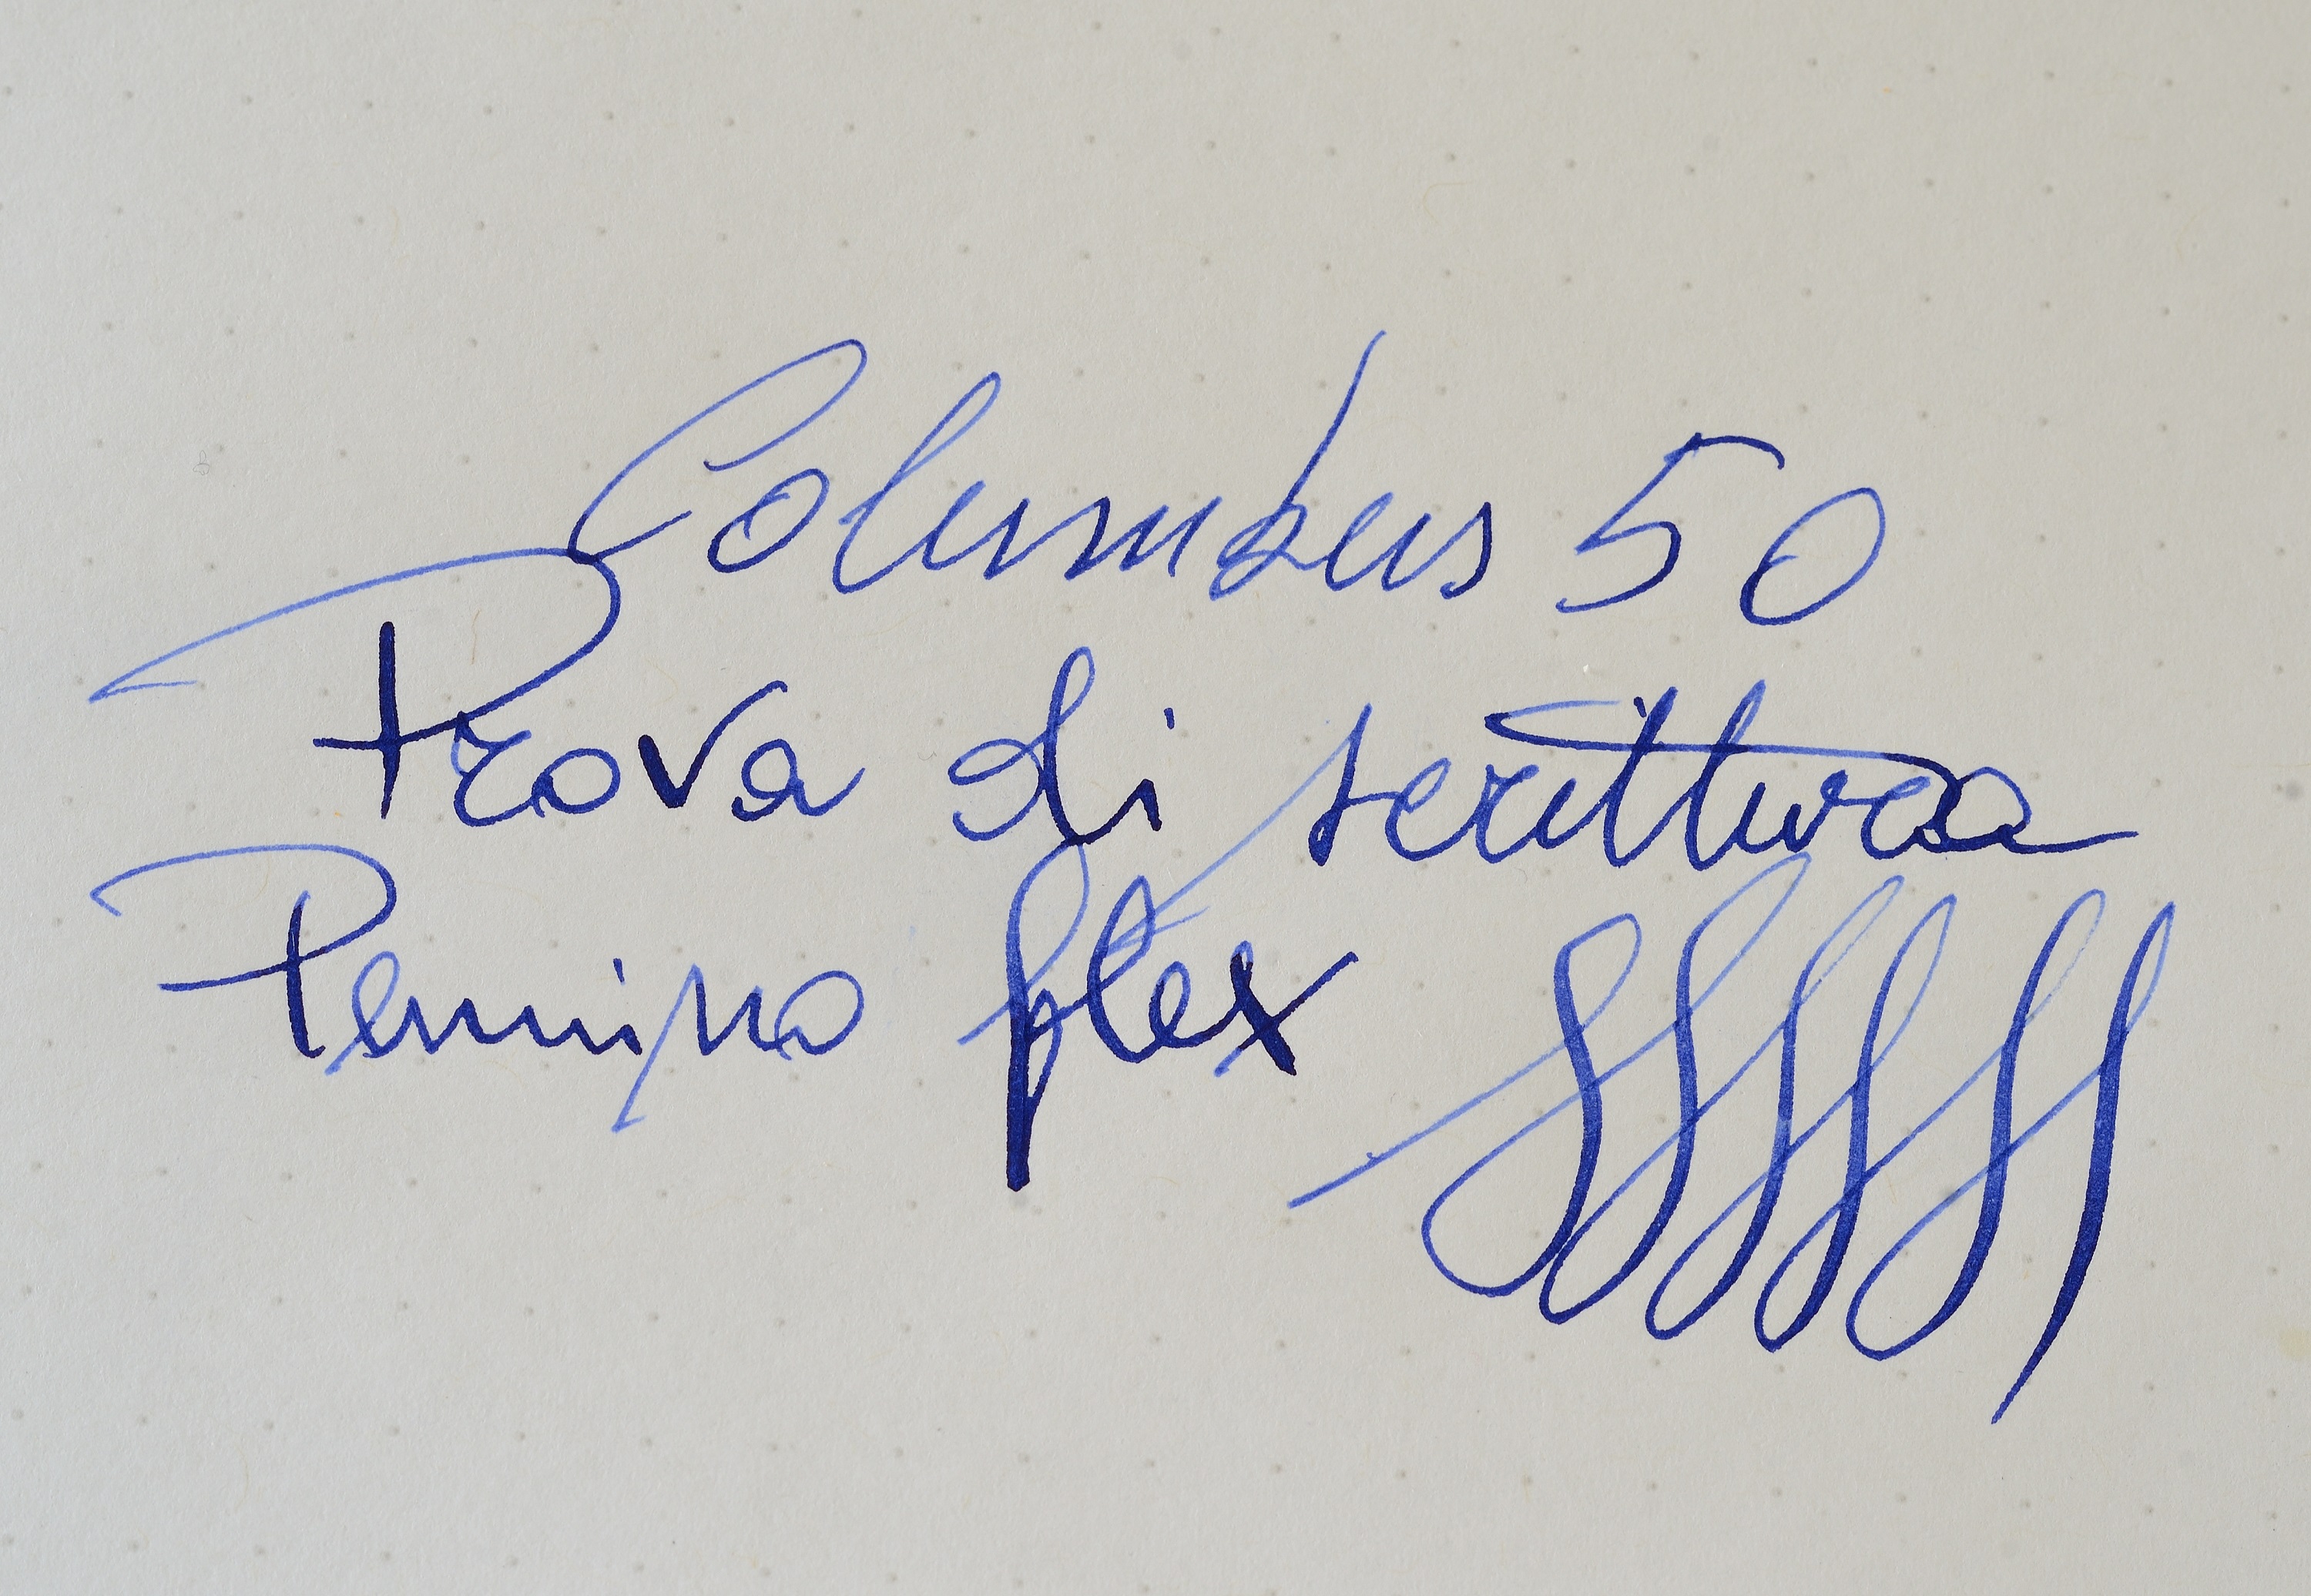 Columbus 50
Prova di scrittura
Pennino flex